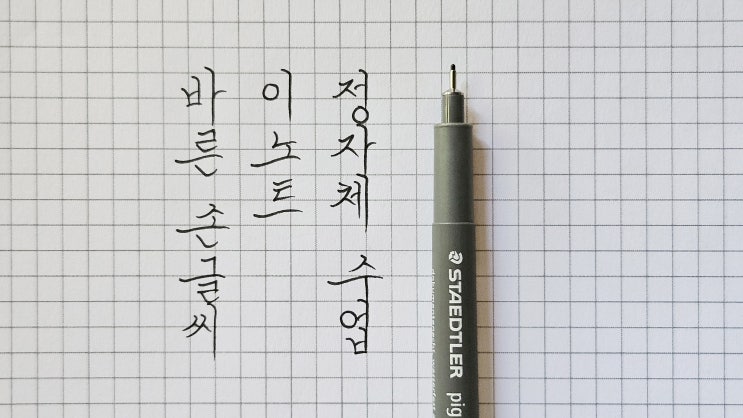 정자체 수업
이노트
바른 손글씨
STAEDTLER
pig